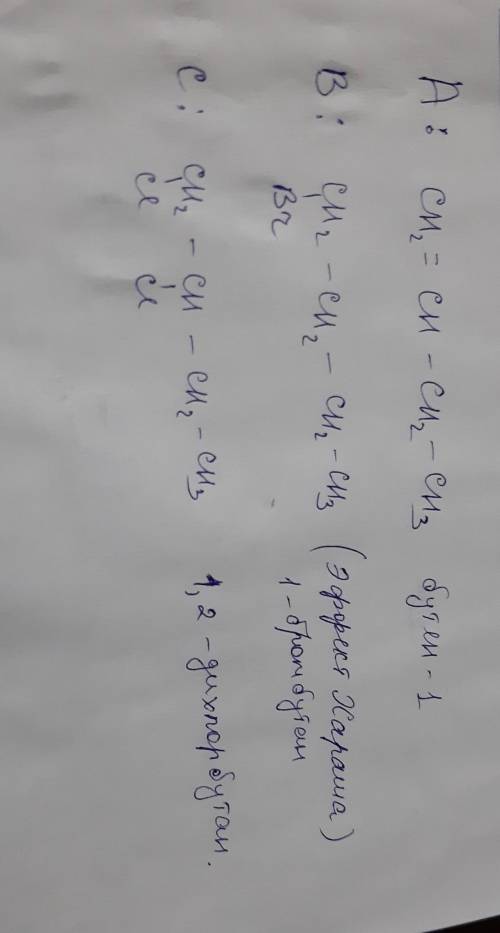 A: CH₂ = CH – CH₂ – CH₃ бутен-1
B: CH₂ – CH₂ – CH₂ – CH₃ (Эффект Хараша)
Br 1-бромбутан
C: CH₂ – CH – CH₂ – CH₃ 1,2-дихлорбутан.
Cl Cl